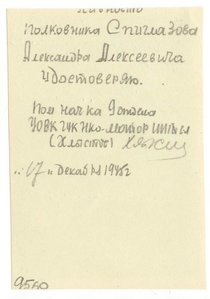 Личность
Полковника Спиглазова
Александра Алексеевича
Удостоверяю.
Пом начка 9 отдела
УОВК ГУК НКО - майор инт/сл
(Хлыстов)
"17" Декабря 1945г
9560